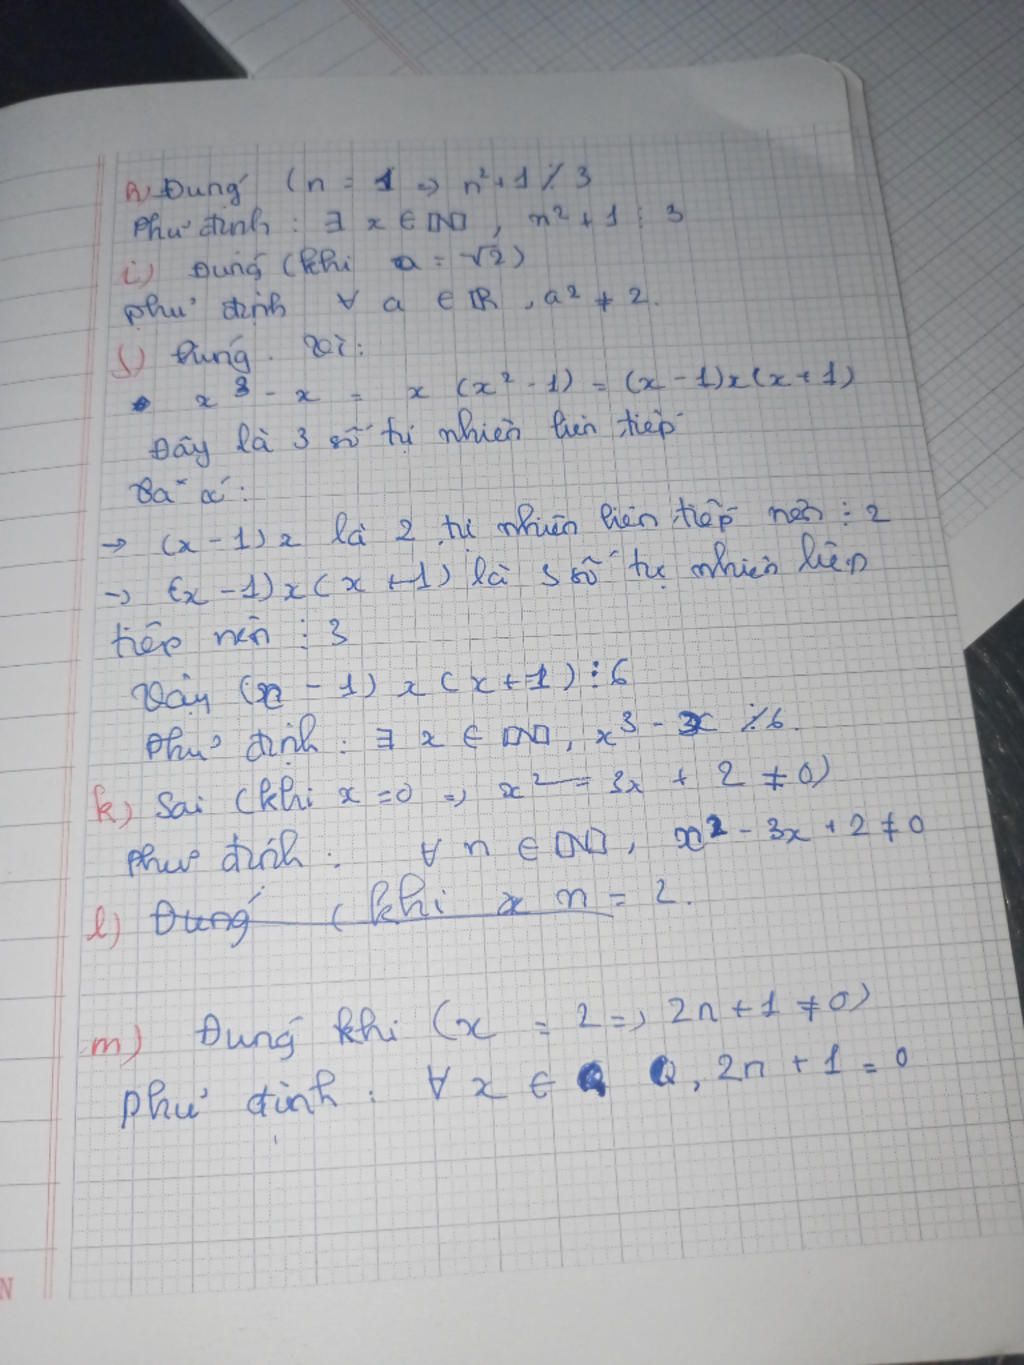 h) Đúng (n = 1 => n²+1 ⋮̸ 3
Phủ định : ∃ x ∈ ℕ , n² + 1 ⋮ 3
i) Đúng (khi a = √2)
phủ định ∀ a ∈ ℝ , a² ≠ 2.
j) Đúng. Vì:
x³ - x = x (x² - 1) = (x - 1)x(x + 1)
Đây là 3 số tự nhiên liên tiếp
Ta có:
→ (x - 1) x là 2 tự nhiên liên tiếp nên ⋮ 2
→ (x - 1) x (x + 1) là 3 số tự nhiên liên
tiếp nên ⋮ 3
Vậy (x - 1) x (x + 1) ⋮ 6
Phủ định : ∃ x ∈ ℕ, x³ - x ⋮̸ 6.
k) Sai (khi x = 0 => x² - 3x + 2 ≠ 0)
Phủ định : ∀ n ∈ ℕ, x² - 3x + 2 ≠ 0
l) Đúng ( khi x n = 2.
m) Đúng khi (x = 2 => 2n + 1 ≠ 0)
Phủ định : ∀ x ∈ Q, 2n + 1 = 0
N